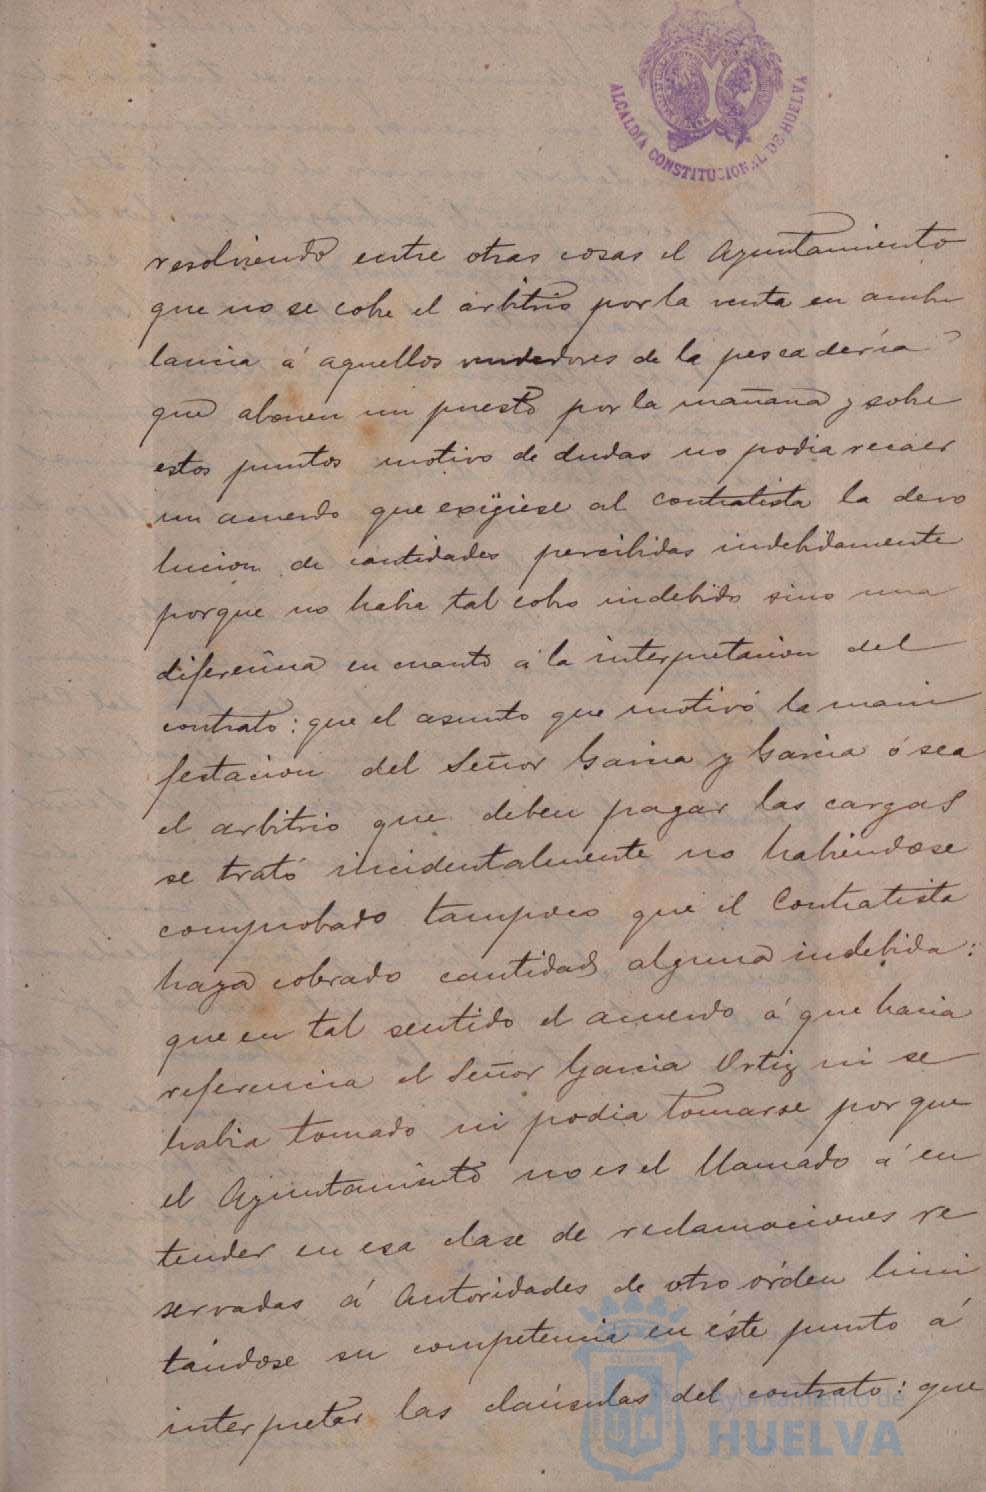 ALCALDÍA CONSTITUCIONAL DE HUELVA
resolviendo entre otras cosas el Ayuntamiento
que no se cobre el arbitrio por la venta en ambu
lancia á aquellos vendedores de la pescadería
que abonen un puesto por la mañana y sobre
estos puntos motivo de dudas no podia recaer
un acuerdo que exigiese al contratista la devo
lucion de cantidades percibidas indebidamente
porque no habia tal cobro indebido sino una
diferencia en cuanto á la interpretacion del
contrato: que el asunto que motivó la mani
festacion del Señor Garcia y Garcia ó sea
el arbitrio que deben pagar las cargas
se trató incidentalmente no habiendose
comprobado tampoco que el Contratista
haya cobrado cantidad alguna indebida:
que en tal sentido el acuerdo á que hacia
referencia el Señor Garcia Ortiz ni se
habia tomado ni podia tomarse porque
el Ayuntamiento no es el llamado á en
tender en esa clase de reclamaciones re
servadas á Autoridades de otro órden limi
tándose su competencia en éste punto á
interpretar las claúsulas del contrato: que
Ayuntamiento de
HUELVA